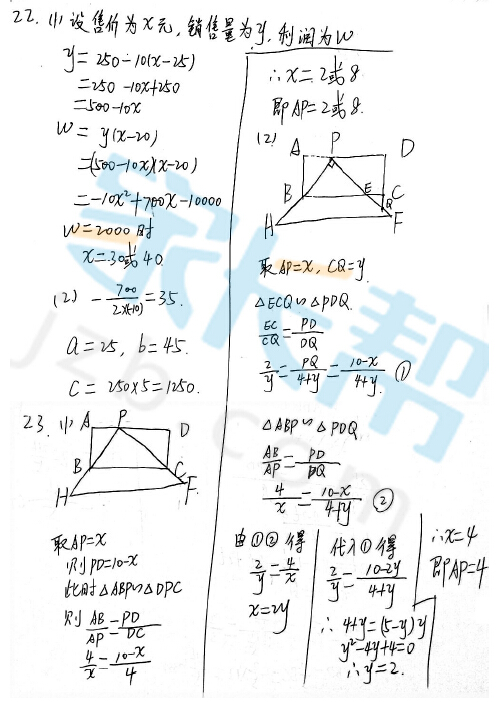 22. (1) 设售价为x元,销售量为y,利润为W
y=250-10(x-25)
=250-10x+250
=500-10x
W= y(x-20)
=(500-10x)(x-20)
=-10x²+700x-10000
W=2000时
x=30或40.
(2) -700/2×(-10)=35.
a=25, b=45.
C=250×5=1250.
23. (1) A P D
B C
H F
取AP=x
则PD=10-x
此时△ABP∽△DPC
则 AB/AP=PD/DC
4/x=10-x/4
∴x=2或8
即AP=2或8.
(2) A P D
B E C
Q
H F
取AP=x, CQ=y.
△ECQ∽△PDQ.
EC/CQ=PD/DQ
2/y=PQ/4+y=10-x/4+y ①
△ABP∽△PDQ
AB/AP=PD/DQ
4/x=10-x/4+y ②
由①②得
2/y=4/x
x=2y
代入①得
2/y=10-2y/4+y
∴4+y=(5-y)y
y²-4y+4=0
∴y=2.
∴x=4
即AP=4
家长帮
jzb.com